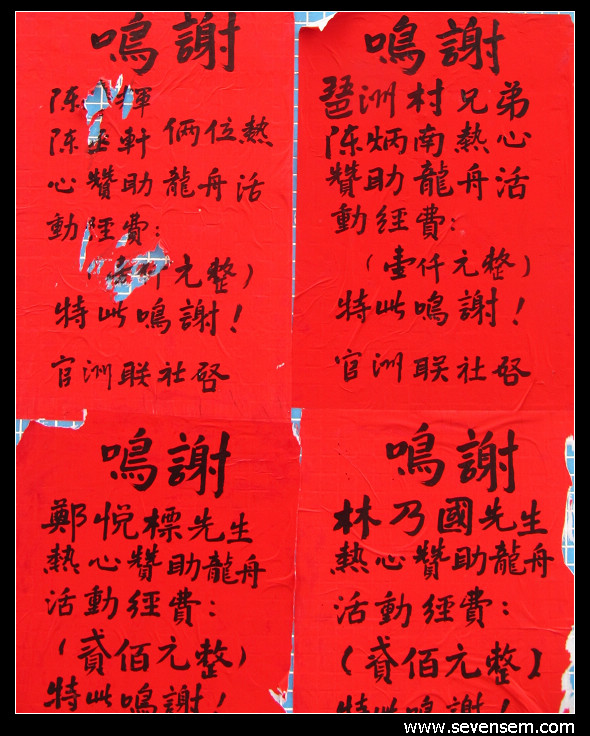 鳴謝
陈 輝
陈丞軒俩位熱
心贊助龍舟活
動經費：
（壹仟元整）
特此鳴謝！
官洲联社啓
鳴謝
琶洲村兄弟
陈炳南熱心
贊助龍舟活
動經費：
（壹仟元整）
特此鳴謝！
官洲联社啓
鳴謝
鄭悦標先生
熱心贊助龍舟
活動經費：
（貳佰元整）
特此鳴謝！
鳴謝
林乃國先生
熱心贊助龍舟
活動經費：
（貳佰元整）
特此鳴謝！
www.sevensem.com